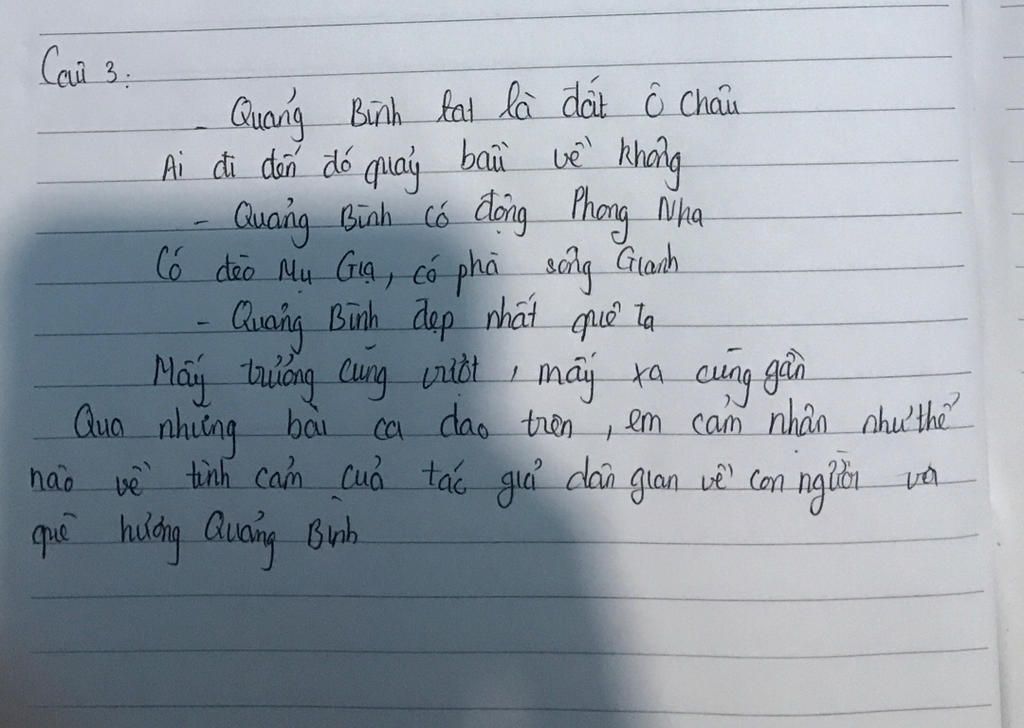 Câu 3:
- Quảng Bình tat là đất Ô Châu
Ai đi đến đó quảy bầu về không
- Quảng Bình có động Phong Nha
Có đèo Mụ Giạ, có phà sông Gianh
- Quảng Bình đẹp nhất quê ta
Mấy trưởng cũng vượt, mấy xa cũng gần
Qua những bài ca dao trên, em cảm nhận như thế
nào về tình cảm của tác giả dân gian về con người và
quê hương Quảng Bình